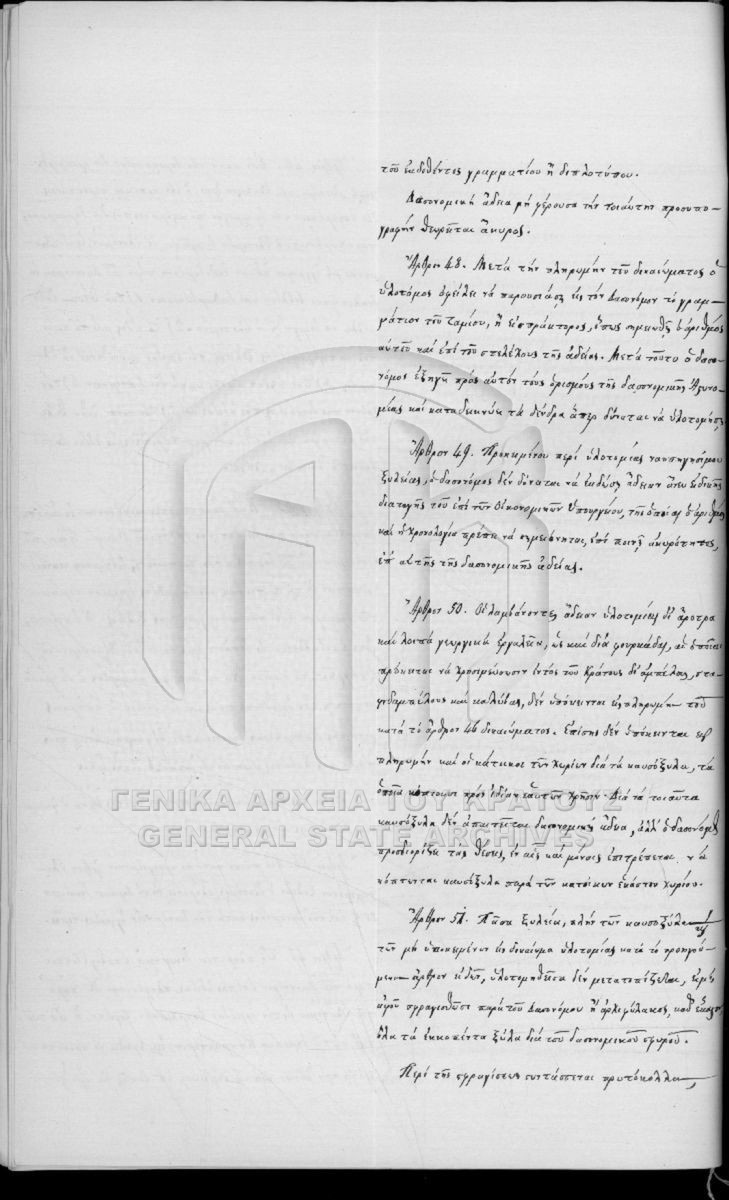 τοῦ ἐκδοθέντος γραμματίου ἢ διπλοτύπου.
Δασονομικὴ ἄδεια μὴ φέρουσα τὴν τοιαύτην προσυπο-
γραφὴν θεωρεῖται ἄκυρος.
Ἄρθρον 48. Μετὰ τὴν πληρωμὴν τοῦ δικαιώματος ὁ
ὑλοτόμος ὀφείλει νὰ παρουσιάσῃ εἰς τὸν Δασονόμον τὸ γραμ-
μάτιον τοῦ Ταμίου, ἢ εἰσπράκτορος, ὅπως σημειωθῇ ὁ ἀριθμὸς
αὐτοῦ καὶ ἐπὶ τοῦ στελέχους τῆς ἀδείας. Μετὰ τοῦτο ὁ δασο-
νόμος ἐξηγεῖ πρὸς αὐτὸν τοὺς ὁρισμοὺς τῆς δασονομικῆς Ἀστυνο-
μίας καὶ καταδεικνύει τὰ δένδρα ἅπερ δύναται νὰ ὑλοτομήσῃ.
Ἄρθρον 49. Προκειμένου περὶ ὑλοτομίας ναυπηγησίμου
ξυλείας, ὁ δασονόμος δὲν δύναται νὰ ἐκδώσῃ ἄδειαν ἄνευ εἰδικῆς
διαταγῆς τοῦ ἐπὶ τῶν Οἰκονομικῶν Ὑπουργείου, τῆς ὁποίας ὁ ἀριθμὸς
καὶ ἡ χρονολογία πρέπει νὰ σημειόνηται, ἐπὶ ποινῇ ἀκυρότητος,
ἐπ' αὐτῆς τῆς δασονομικῆς ἀδείας.
Ἄρθρον 50. Οἱ λαμβάνοντες ἄδειαν ὑλοτομίας δι' ἄροτρα
καὶ λοιπὰ γεωργικὰ ἐργαλεῖα, ὡς καὶ διὰ φουρκάδας, αἱ ὁποῖαι
πρόκειται νὰ χρησιμεύσωσιν ἐντὸς τοῦ Κράτους δι' ἀμπέλους, στα-
φιδαμπέλους καὶ καλύβας, δὲν ὑπόκεινται εἰς πληρωμὴν τοῦ
κατὰ τὸ ἄρθρον 46 δικαιώματος. Ἐπίσης δὲν ὑπόκεινται εἰς
πληρωμὴν καὶ οἱ κάτοικοι τῶν χωρίων διὰ τὰ καυσόξυλα, τὰ
ὁποῖα κόπτουσι πρὸς ἰδίαν ἑαυτῶν χρῆσιν. Διὰ τὰ τοιαῦτα
καυσόξυλα δὲν ἀπαιτεῖται δασονομικὴ ἄδεια, ἀλλ' ὁ δασονόμος
προσδιορίζει τὰς θέσεις, ἐν αἷς καὶ μόναις ἐπιτρέπεται νὰ
κόπτωνται καυσόξυλα παρὰ τῶν κατοίκων ἑκάστου χωρίου.
Ἄρθρον 51. Πᾶσα ξυλεία, πλὴν τῶν καυσοξύλων καὶ
τῶν μὴ ὑποκειμένων εἰς δικαίωμα ὑλοτομίας κατὰ τὸ προηγού-
μενον ἄρθρον εἰδῶν, ὑλοτομηθεῖσα δὲν μετατοπίζεται, εἰμὴ
ἀφοῦ σφραγισθῶσι παρὰ τοῦ Δασονόμου ἢ ἀρχιφύλακος, καθ' ἕκαστον
ὅλα τὰ ἐκκοπέντα ξύλα διὰ τοῦ δασονομικοῦ σφυροῦ.
Περὶ τῆς σφραγίσεως συντάσσεται πρωτόκολλον,
ΓΕΝΙΚΑ ΑΡΧΕΙΑ ΤΟΥ ΚΡΑΤΟΥΣ
GENERAL STATE ARCHIVES